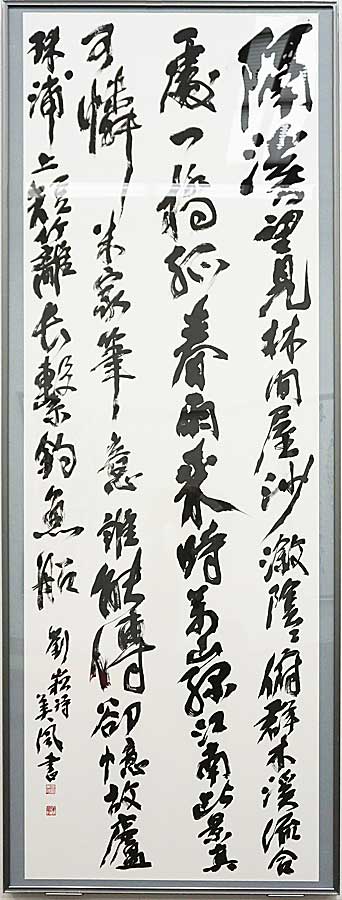 隔溪望見林間屋沙漵陰陰俯群木溪流合
處一橋孤春雨來時萬山緑江南此景真
可憐米家筆意誰能傳卻憶故廬
珠浦上短籬長繫釣魚船
劉崧詩
美風書